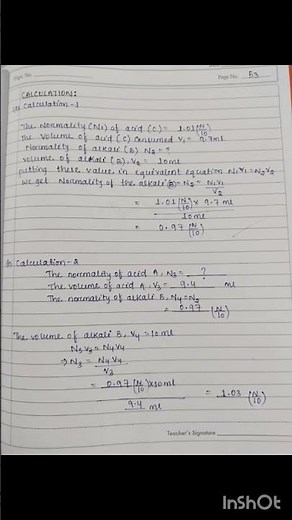 Page No. 53
CALCULATION:
Calculation-1
The Normality (N1) of acid (C) = 1.01 (N/10)
The volume of acid (C) consumed V1 = 9.7 ml
Normality of alkali (B) N2 = ?
volume of alkali (B), V2 = 10ml
putting these value in equivalent equation N1V1 = N2V2
we get Normality of the alkali (B) = N2 = N1V1/V2
= 1.01 (N/10) x 9.7 ml
10ml
= 0.97 (N/10)
Calculation-2
The normality of acid A, N3 = ?
The volume of acid A, V3 = 9.4 ml
The normality of alkali B, N4 = N2
= 0.97 (N/10)
The volume of alkali B, V4 = 10ml
N3V3 = N4V4
⇒ N3 = N4V4/V3
= 0.97 (N/10) x 10ml = 1.03 (N/10)
9.4 ml
Teacher's Signature
InShOt